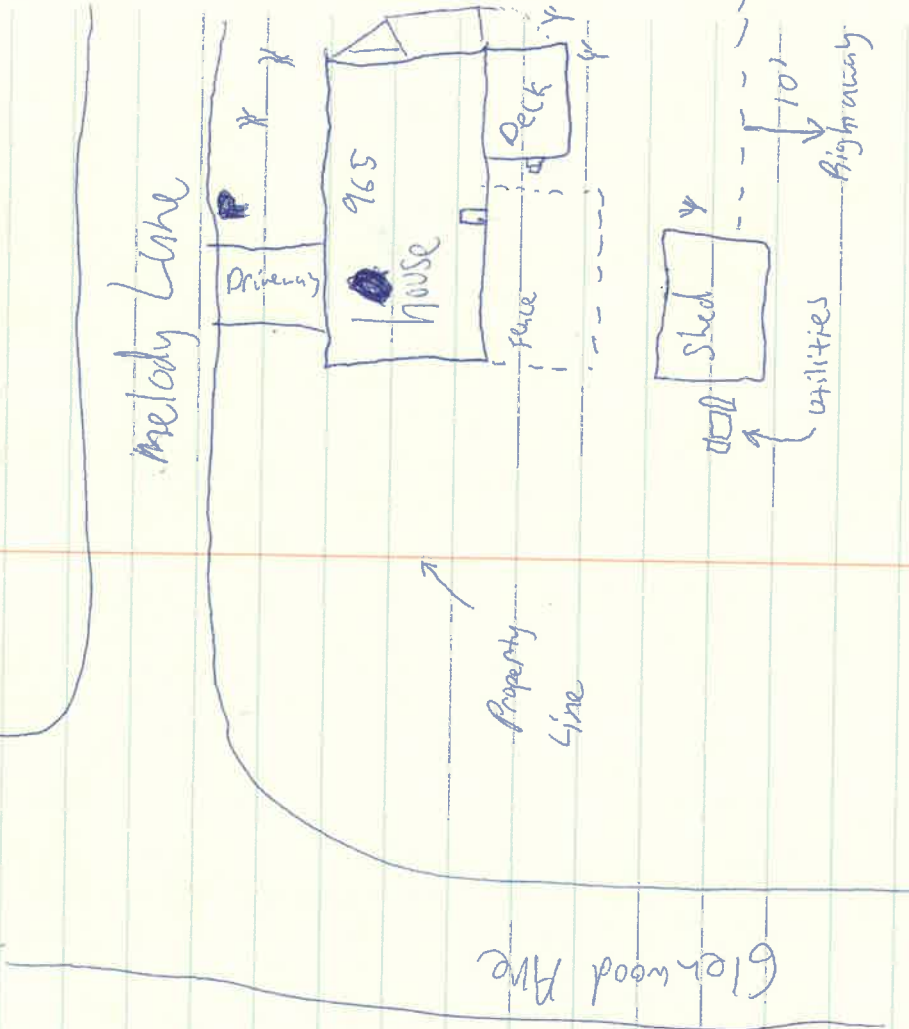 melody Lane
Driveway
965
house
Deck
Fence
Shed
utilities
10'
Right away
Property
Line
Glenwood Ave